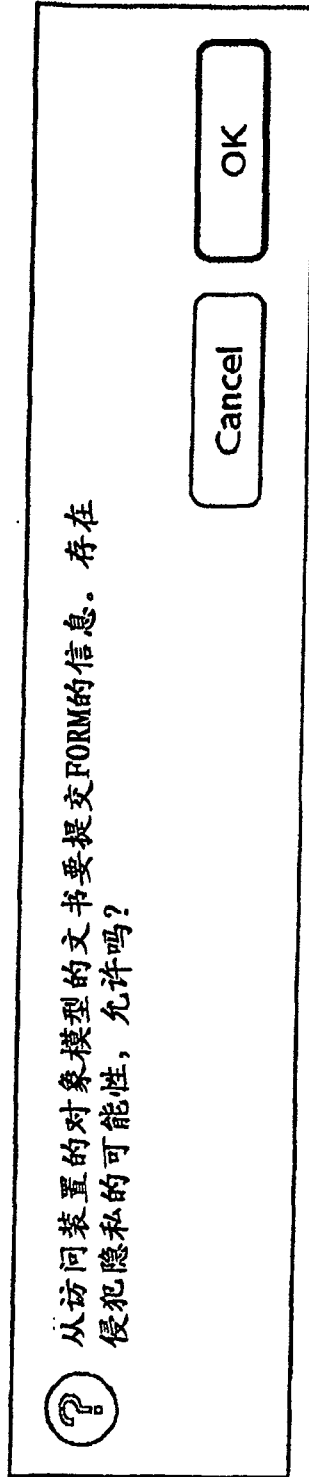 从访问装置的对象模型的文书要提交FORM的信息。存在
侵犯隐私的可能性，允许吗？
Cancel
OK